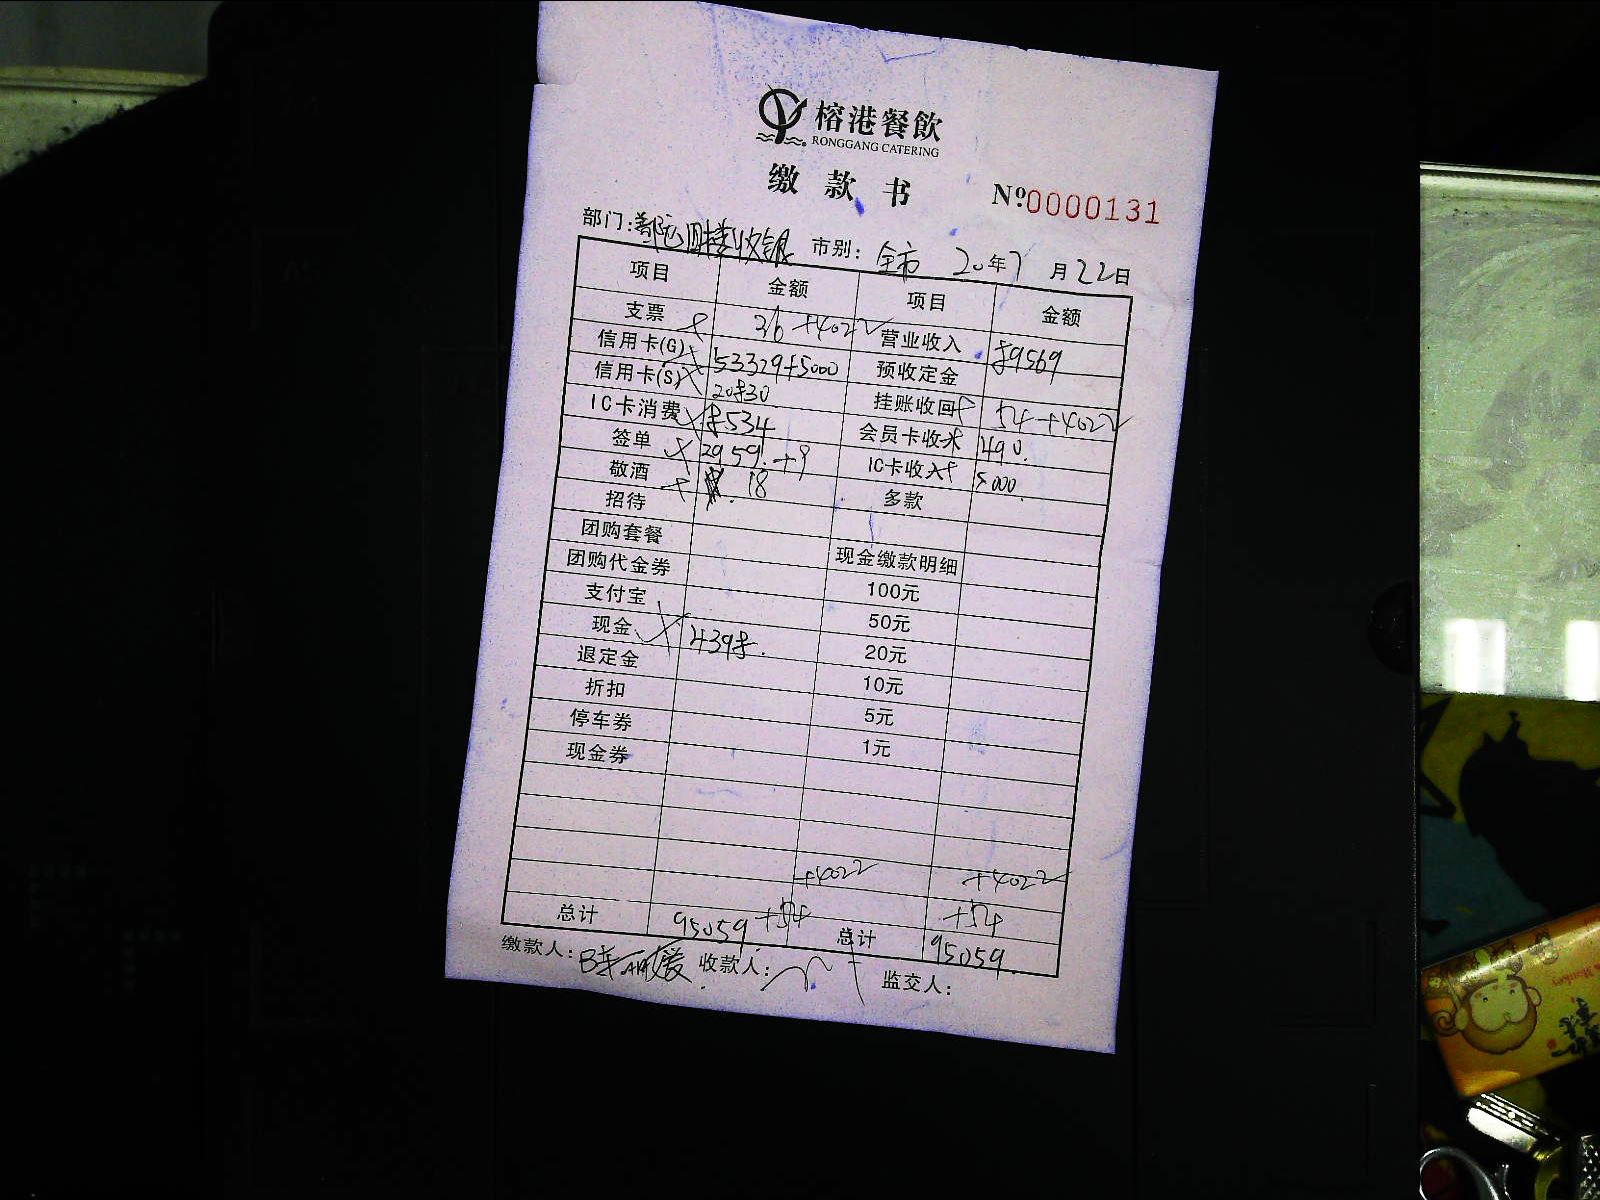 榕港餐飲
RONGGANG CATERING
缴款书
Nº0000131
部门: 四楼收银 市别: 全市 20年7月22日
项目 金额 项目 金额
支票 316 +4022 营业收入 89569
信用卡(G) 53329+5000 预收定金
信用卡(S) 20830 挂账收回 54 +4022
IC卡消费 8534 会员卡收 490.
签单 2959. +9 IC卡收入 5000.
敬酒 18 多款
招待
团购套餐 现金缴款明细
团购代金券 100元
支付宝 50元
现金 4398. 20元
退定金 10元
折扣 5元
停车券 1元
现金券
+4022 +4022
+54 +54
总计 95059. 总计 95059.
缴款人: 收款人: 监交人: